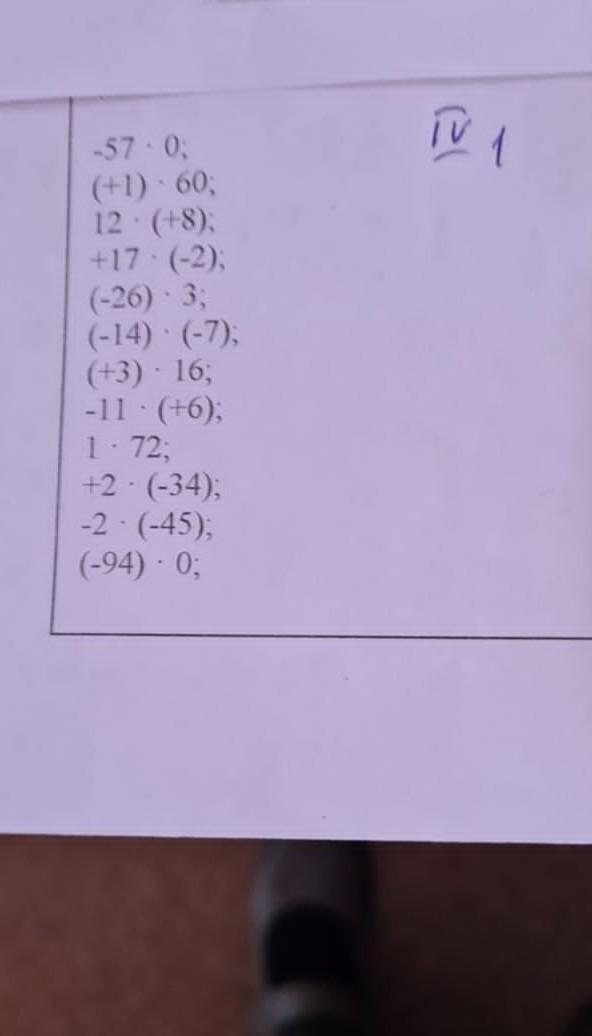 IV 1
-57 · 0;
(+1) · 60;
12 · (+8);
+17 · (-2);
(-26) · 3;
(-14) · (-7);
(+3) · 16;
-11 · (+6);
1 · 72;
+2 · (-34);
-2 · (-45);
(-94) · 0;